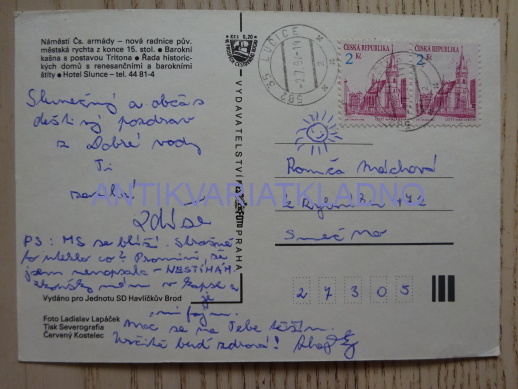 Náměstí Čs. armády – nová radnice pův.
městská rychta z konce 15. stol. • Barokní
kašna s postavou Tritona • Řada historic-
kých domů s renesančními a barokními
štíty • Hotel Slunce – tel. 44 81-4
Slunečný a občas
deštivý pozdrav
z Dobré vody
Ti
Zdůse
PS: MS se blíží. Strašně
to uteklo co? Promiň, že
jsem nenapsala – NESTÍHÁM
moc se na Tebe těším.
Určitě buď zdravá! Ahoj
Vydáno pro Jednotu SD Havlíčkův Brod
Foto Ladislav Lepáček
Tisk Severografia
Červený Kostelec
VYDAVATELSTVÍ
PRAHA
ANTIKVARIATKLADNO
ČESKÁ REPUBLIKA
2 Kč
ČESKÁ REPUBLIKA
2 Kč
Romča Máchová
472
Smečno
27305